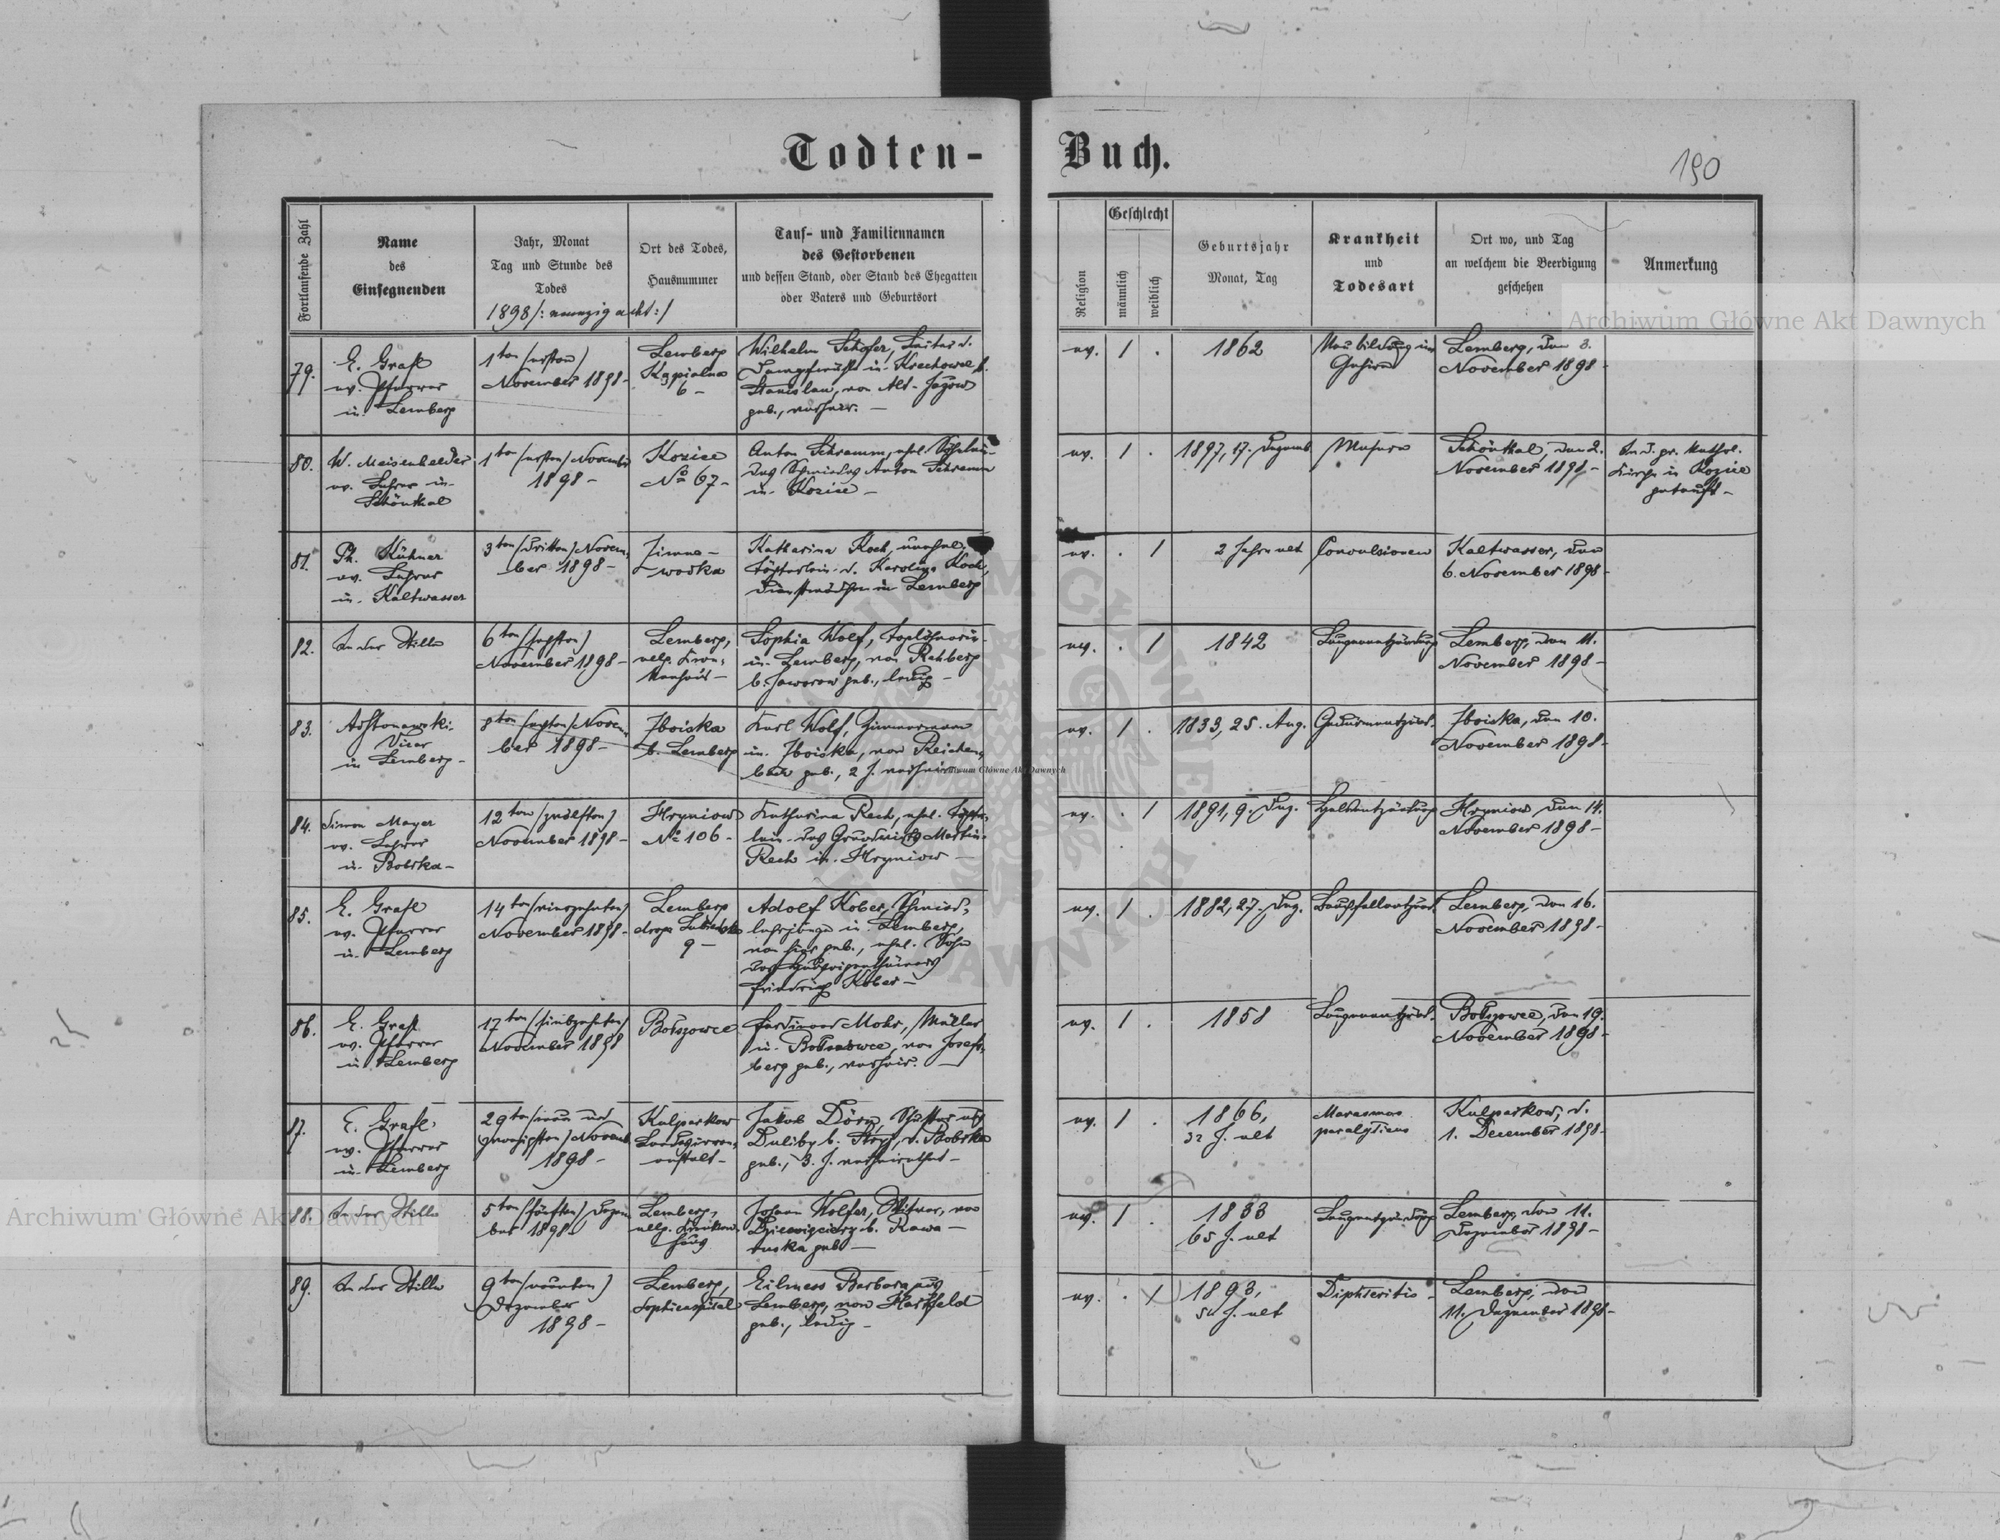 Todten-Buch.
190
Fortlaufende Zahl
Name
des
Einsegnenden
Jahr, Monat
Tag und Stunde des
Todes
1898/: neunzig acht:/
Ort des Todes,
Hausnummer
Tauf- und Familiennamen
des Gestorbenen
und dessen Stand, oder Stand des Ehegatten
oder Vaters und Geburtsort
Religion
Geschlecht
männlich
weiblich
Geburtsjahr
Monat, Tag
Krankheit
und
Todesart
Ort wo, und Tag
an welchem die Beerdigung
geschehen
Anmerkung
Archiwum Główne Akt Dawnych
79.
E. Grafl
ev. Pfarrer
in Lemberg
1ten /ersten/
November 1898-
Lemberg
6-
Wilhelm Schäfer, Leiter d.
Dampfmühle in Krechowce b.
Stanislau, von Alt-Jazow
geb., verheir. -
ev. 1 .
1862
Neubildung im
Gehirn
Lemberg, den 3.
November 1898-
80.
W. Meisenhelder
ev. Lehrer in
Schönthal
1ten /ersten/ November
1898-
Kozice
No 67-
Anton Schramm, ehel. Söhnlein
des Schmiedes Anton Schramm
in Kozice -
ev. 1 .
1897, 17. Dezemb.
Masern
Schönthal, den 2.
November 1898-
In d. gr. kathol.
Kirche in Kozice
getauft-
81.
Ph. Kühner
ev. Lehrer
in Kaltwasser
3ten /dritten/ Novem-
ber 1898-
Zimna-
wodka
Katharina Koch, unehel.
Töchterlein d. Karoline Koch,
Dienstmädchen in Lemberg
ev. . 1
2 Jahre alt
Convulsionen
Kaltwasser, den
6. November 1898-
82.
In der Stille
6ten /sechsten/
November 1898-
Lemberg,
allg. Kran-
kenhaus-
Sophia Wolf, Taglöhnerin
in Lemberg, von Rehberg
b. Jaworow geb., ledig-
ev. . 1
1842
Lungenentzündung
Lemberg, den 11.
November 1898-
83.
Vicar
in Lemberg-
8ten /achten/ Novem-
ber 1898-
Zboiska
b. Lemberg
Karl Wolf, Zimmermann
in Zboiska, von Reichen-
bach geb., 2 J. verheir.
ev. 1 .
1833, 25. Aug.
Gedärmentzünd.
Zboiska, den 10.
November 1898-
Archiwum Główne Akt Dawnych
84.
Simon Mayer
ev. Lehrer
in Bobrka-
12ten /zwölften/
November 1898-
Hryniow
No 106-
Katharina Rech, ehel. Töchter-
lein des Grundwirths Martin
Rech in Hryniow -
ev. . 1
1891, 9. Dez.
Halsentzündung
Hryniow, den 14.
November 1898-
85.
E. Grafl
ev. Pfarrer
in Lemberg
14ten /vierzehnten/
November 1898-
Lemberg
9-
Adolf Kober, Schmied-
lehrjunge in Lemberg,
von hier geb., ehel. Sohn
Friedrich Kober-
ev. 1 .
1882, 27. Dez.
Bauchfellentzünd.
Lemberg, den 16.
November 1898-
86.
E. Grafl
ev. Pfarrer
in Lemberg
17ten /siebzehnten/
November 1898
Bołszowce
Ferdinand Mohr, Müller
in Bołszowce, von Josefs-
berg geb., verheir. -
ev. 1 .
1858
Lungenentzünd.
Bołszowce, den 19.
November 1898-
87.
E. Grafl
ev. Pfarrer
in Lemberg
29ten /neun und
zwanzigsten/ Novemb.
1898-
Kulparkow
Landesirren-
anstalt-
Jakob Dörr, Schuster aus
Duliby b. Stryj, v. Bobrka
geb., 3. J. verheirathet-
ev. 1 .
1866,
32 J. alt
Marasmus
paralyticus
Kulparkow, d.
1. December 1898-
88.
In der Stille
5ten /fünften/ Dezem
ber 1898
Lemberg,
allg. Kranken-
haus
Johann Wolfer, Witwer, von
b. Rawa-
ruska geb -
ev. 1 .
1833
65 J. alt
Lungenentzündung
Lemberg, den 11.
Dezember 1898-
Archiwum Główne Akt Dawnych
89.
In der Stille
9ten /neunten/
Dezember
1898-
Lemberg,
Sophienspital
Eilmess Barbara, aus
Lemberg, von Hartfeld
geb., ledig-
ev. . 1
1893,
5½ J. alt
Diphteritis-
Lemberg, den
11. Dezember 1898-